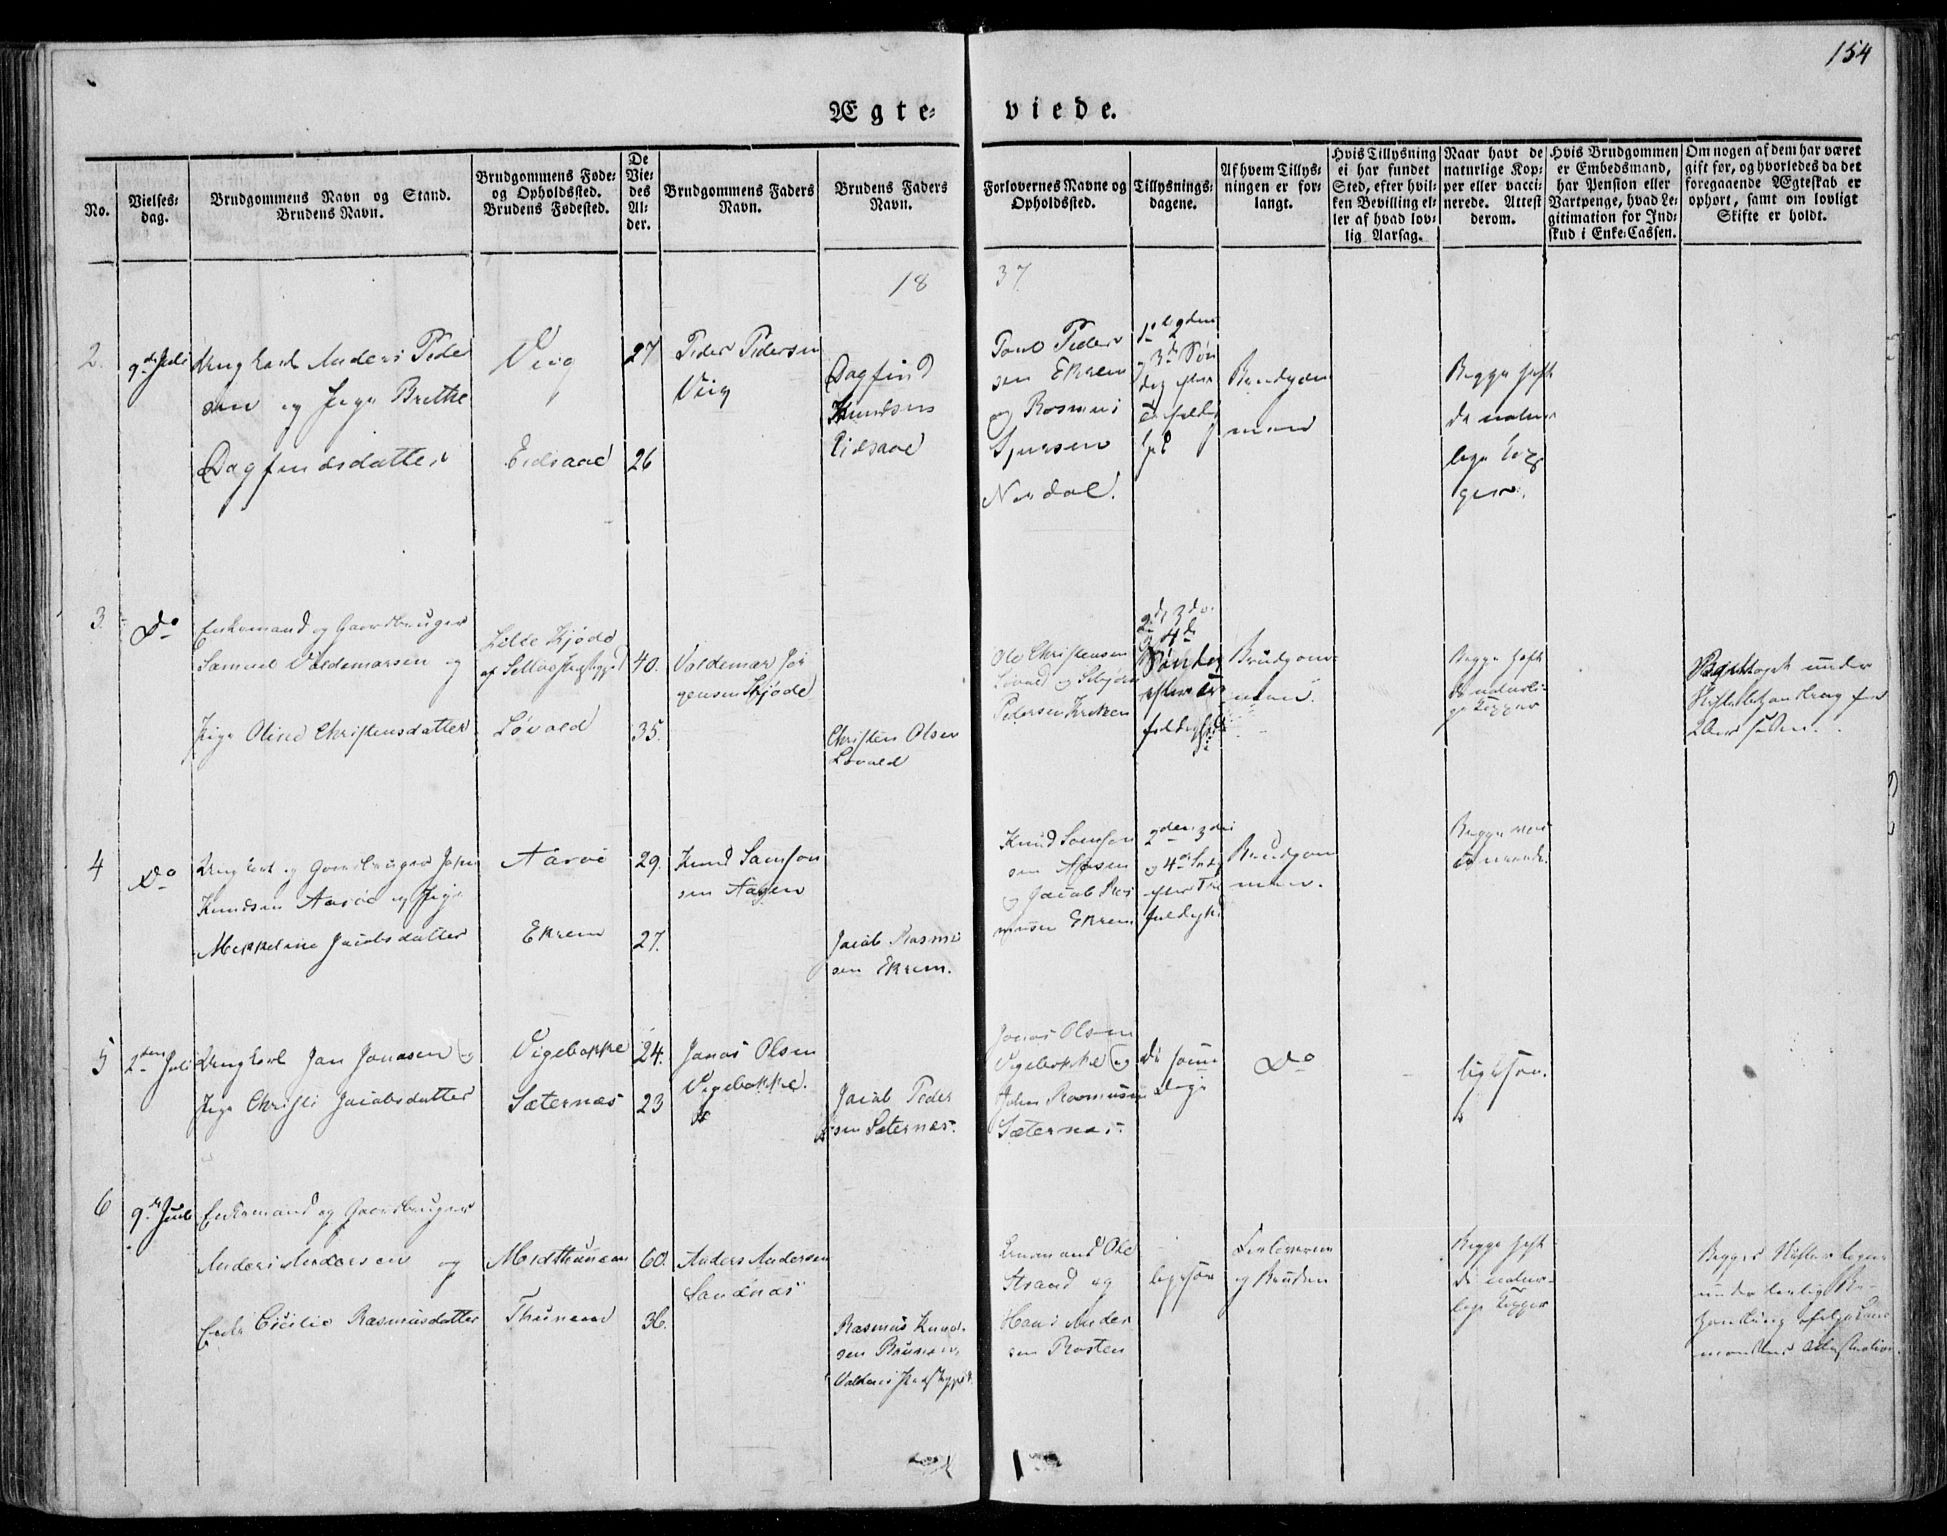 154
Ægte- viede.
No.
Vielses-
dag.
Brudgommens Navn og Stand.
Brudens Navn.
Brudgommens Føde-
og Opholdssted.
Brudens Fødested.
De
Vie-
des
Al-
der.
Brudgommens Faders
Navn.
Brudens Faders
Navn.
Forlovernes Navne og
Opholdssted.
Tillysnings-
dagene.
Af hvem Tillys-
ningen er for-
langt.
Hvis Tillysning
ei har fundet
Sted, efter hvil-
ken Bevilling el-
ler af hvad lov-
lig Aarsag.
Naar havt de
naturlige Kop-
per eller vacci-
nerede. Attest
derom.
Hvis Brudgommen
er Embedsmand,
har Pension eller
Vartpenge, hvad Le-
gitimation for Ind-
skud i Enke-Cassen.
Om nogen af dem har været
gift før, og hvorledes da det
foregaaende Ægteskab er
ophørt, samt om lovligt
Skifte er holdt.
18 37
2.
9de Juli
Ungkarl Anders Peder
sen og Pige Brethe
Dagfindsdatter
Veig
Eidsaae
27
26
Peder Pedersen
Veig
Dagfind
Knudsen
Eidsaae
Poul Peder
sen Ekrem
og Rasmus
Nordal.
og 3de Søn
dag efter
Brudgom
men
Begge haft
de natur
lige Kop
per.
3.
Do
Enkemand og Gaardbruger
Samuel Valdemarsen og
Pige Oline Christensdatter
Lille Kjøde
Løvold
40.
35.
Valdemar Jør
gensen Kjøde
Christen Olsen
Løvold
Ole Christensen
Løvold og
Pedersen
2de 3die
4de
Søndag
efter Tre
foldighed
Brudgom-
men.
Begge haft
de naturli-
ge Kopper
4
Do
Ungkarl og Gaardbruger
Knudsen Aarøe og Pige
Mekkeline Jacobsdatter
Aarøe
Ekrem
29.
27.
Knud Samson
sen Aagen
Jacob Rasmu
sen Ekrem.
Knud Samson
sen
og Jacob Ras
musen Ekrem
2den 3die
og 4de
efter Tre
foldighed
Brudgom
men.
Begge vac
cinerede.
5
2den Juli
Ungkarl Jan Jonasen og
Pige Christi Jacobsdatter
Vigebakke
Sæternæs
24.
23
Jonas Olsen
Vigebakke.
Jacob Peder
sen Sæternæs.
Jonas Olsen
Vigebakke og
John Rasmusen
Sæternæs
De samme
Dage
Do
ligesaa.
6
9de Juli
Enkemand og Gaardbruger
Anders Andersen og
Enke Cicilie Rasmusdatter
Midthunem
Thunem
60.
36.
Anders Andersen
Sandnæs
Rasmus Knud-
sen
Lensmand Ole
Strand og
Hans Ander
sen Rosten
ligesaa
Forloverne
og Bruden
Begge haft
de natur-
lige Kopper